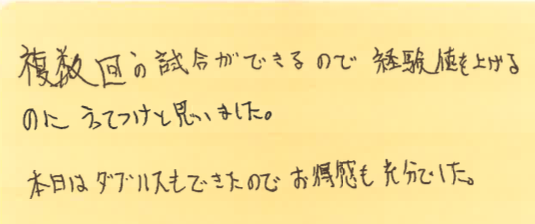 複数回の試合ができるので 経験値を上げる
のに うってつけと思いました。
本日は ダブルスもできたので お得感も 充分でした。